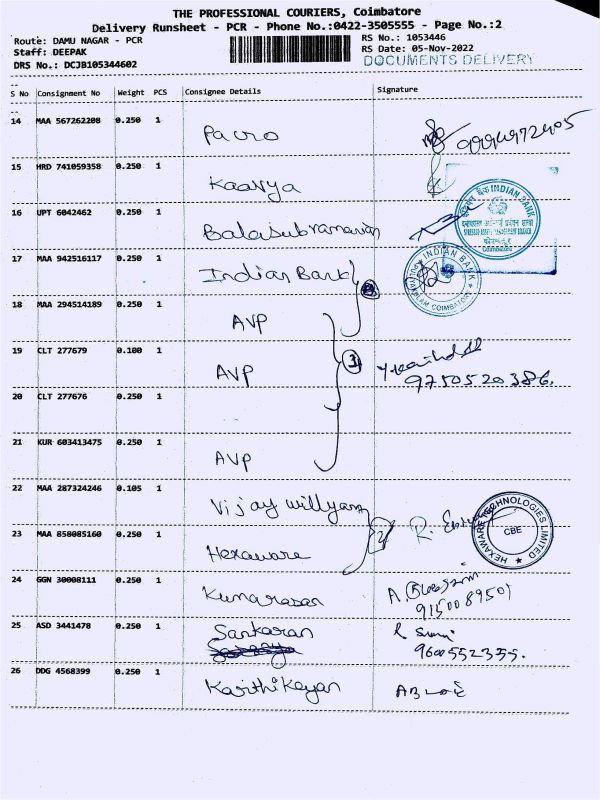 THE PROFESSIONAL COURIERS, Coimbatore
Delivery Runsheet - PCR - Phone No.:0422-3505555 - Page No.:2
Route: DAMU NAGAR - PCR
Staff: DEEPAK
DRS No.: DCJB105344602
RS No.: 1053446
RS Date: 05-Nov-2022
DOCUMENTS DELIVERY
S No Consignment No Weight PCS Consignee Details Signature
14 MAA 567262208 0.250 1
15 HRD 741059358 0.250 1 Kaavya
16 UPT 6042462 0.250 1 Balasubramanian
INDIAN BANK
17 MAA 942516117 0.250 1 Indian Bank
INDIAN BANK
COIMBATORE
18 MAA 294514189 0.250 1 AVP
19 CLT 277679 0.100 1 AVP
3
9750520386.
20 CLT 277676 0.250 1
21 KUR 603413475 0.250 1 AVP
22 MAA 287324246 0.105 1 Vijay willyam
HEXAWARE TECHNOLOGIES LIMITED
CBE
23 MAA 858085160 0.250 1 Hexaware
24 GGN 30008111 0.250 1 Kumarasan
9150089501
25 ASD 3441478 0.250 1 Sankaran
9600552355.
26 DDG 4568399 0.250 1 Karthikeyan